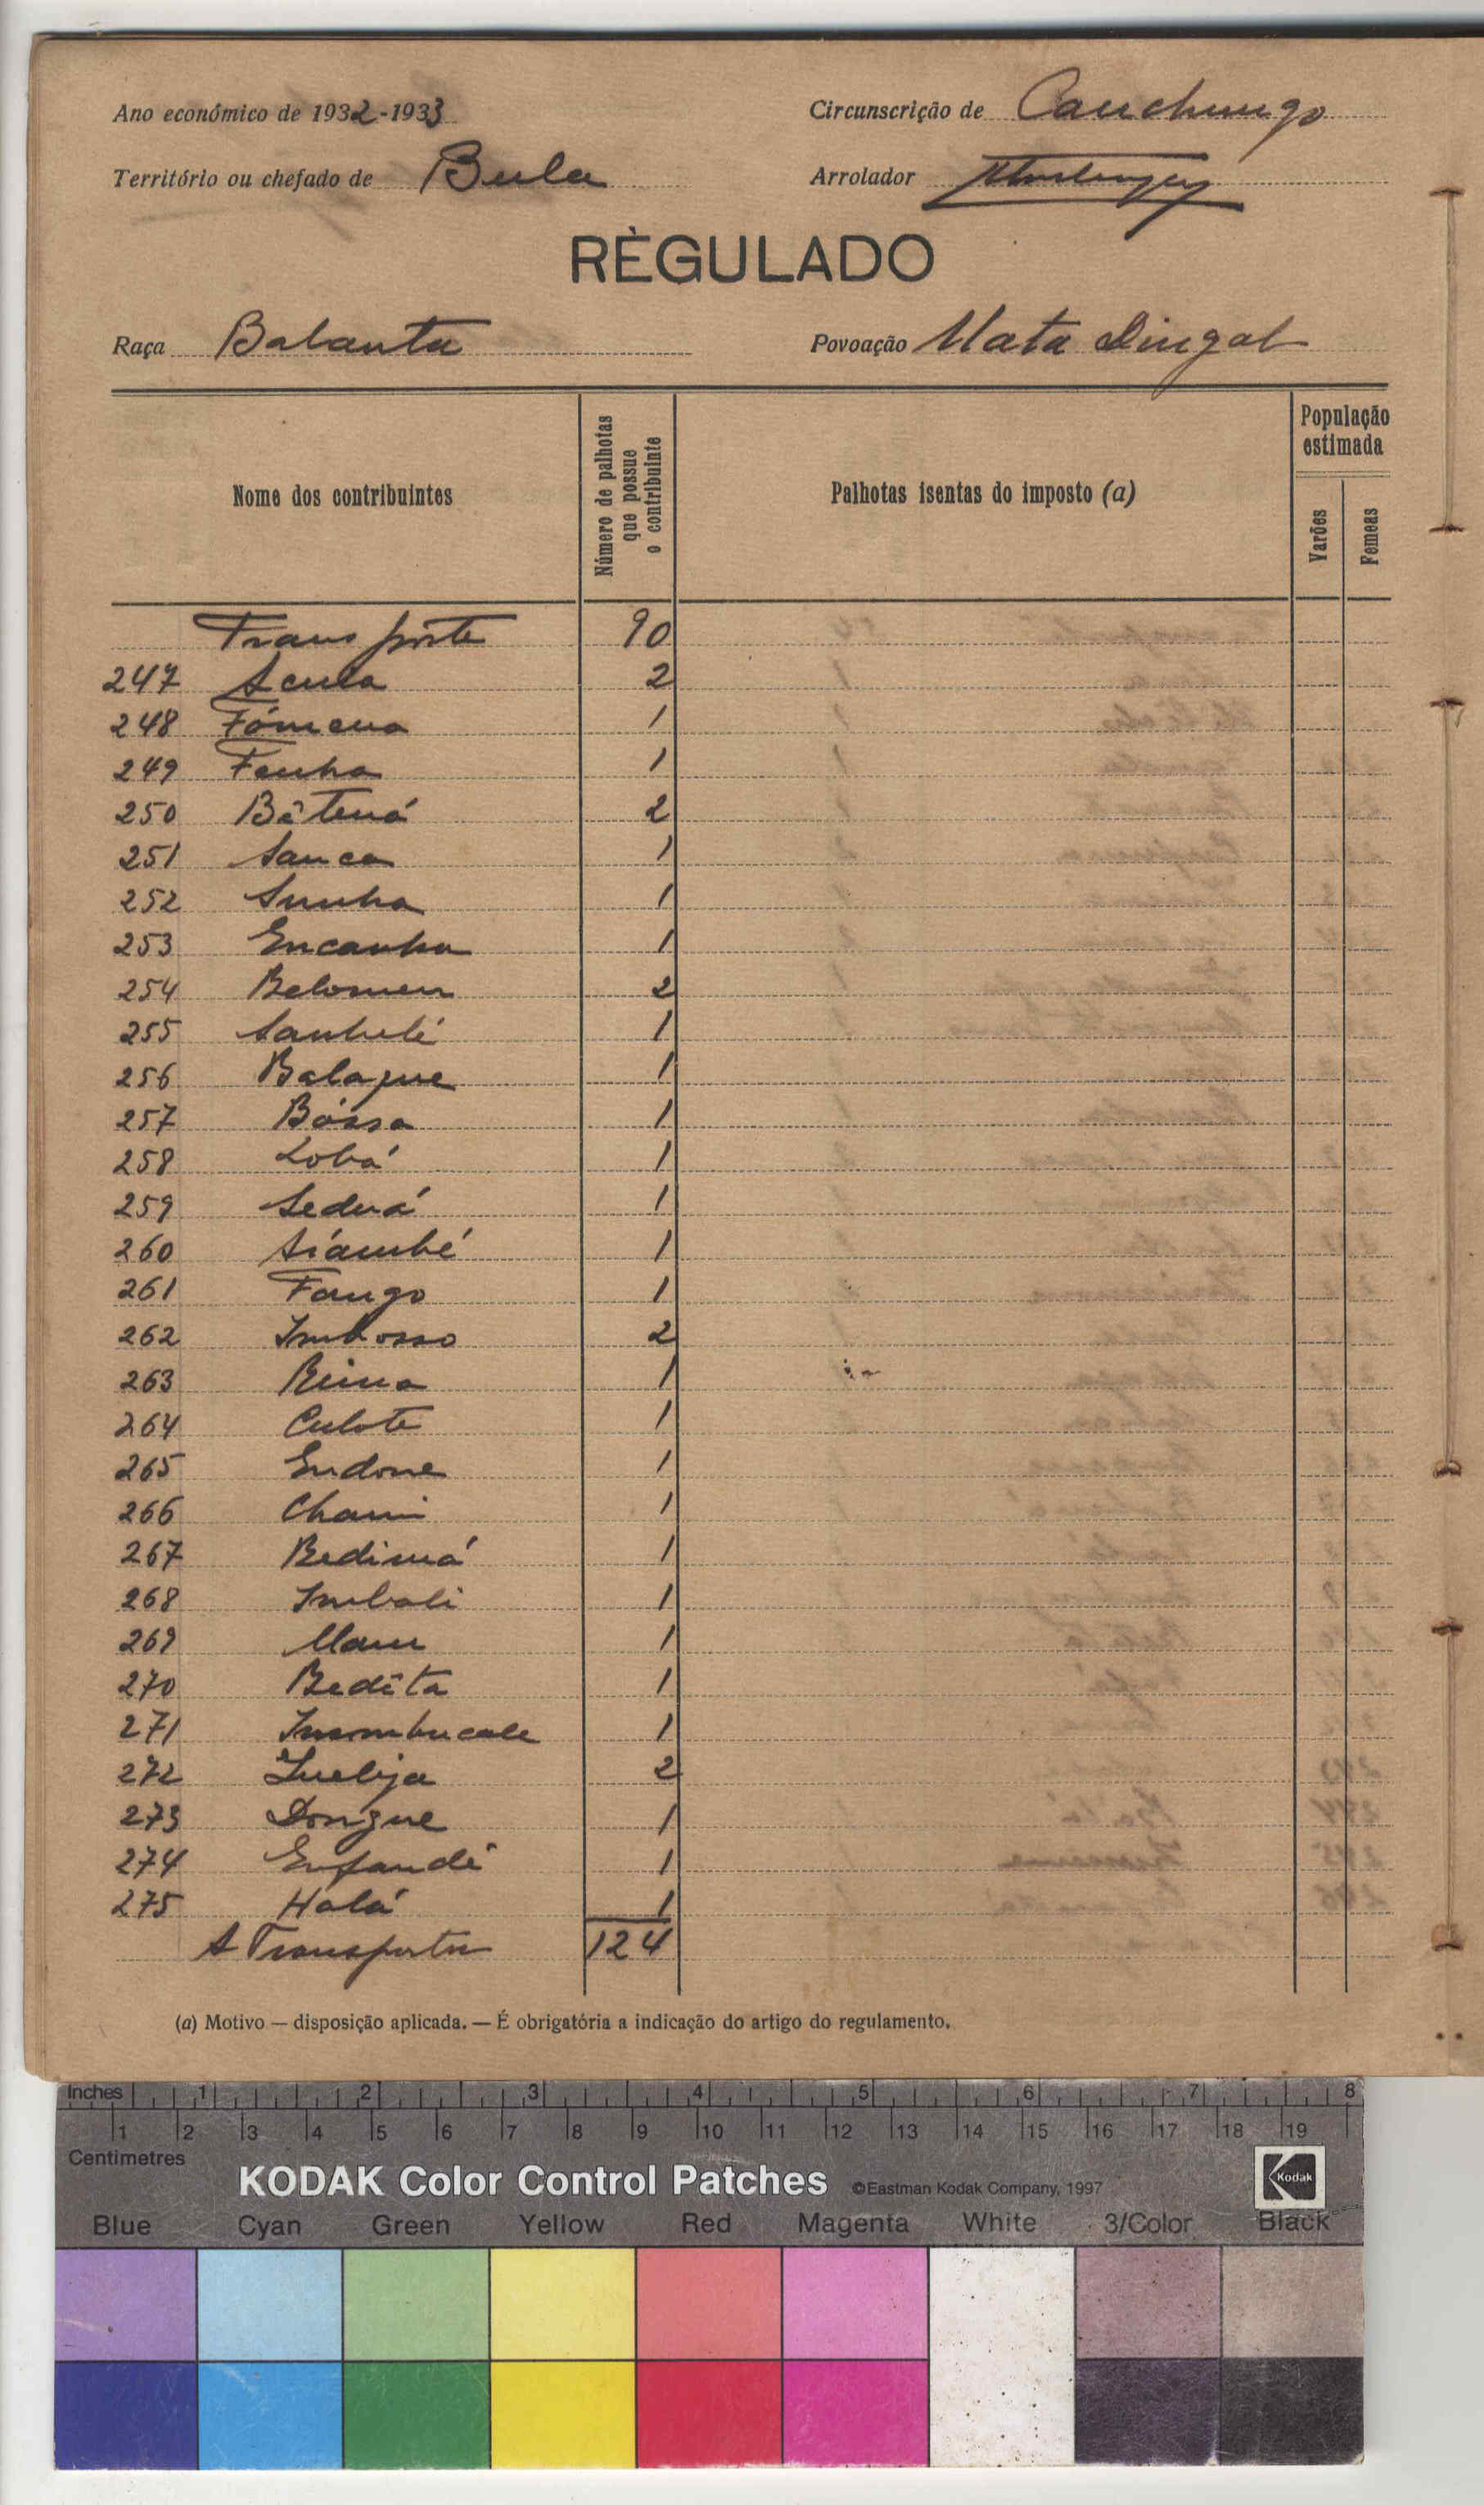 Ano económico de 1932-1933
Circunscrição de Canchungo
Território ou chefado de Bula
Arrolador
RÈGULADO
Raça Balanta
Povoação Mata Dingal
Nome dos contribuintes
Número de palhotas que possue o contribuinte
Palhotas isentas do imposto (a)
População estimada
Varões
Femeas
Transporte 90
247 2
248 Fómena 1
249 Fenha 1
250 Bâtená 2
251 Sanca 1
252 Sunha 1
253 Encanha 1
254 Belomen 2
255 1
256 1
257 Bóssa 1
258 Lobá 1
259 1
260 Siambé 1
261 Fango 1
262 Imbosso 2
263 1
264 Culote 1
265 Endone 1
266 Chami 1
267 Bedimá 1
268 Imbali 1
269 1
270 Bedêta 1
271 1
272 2
273 Dongue 1
274 Enfandé 1
275 Halá 1
A Transportar 124
(a) Motivo — disposição aplicada. — É obrigatória a indicação do artigo do regulamento.
Inches 1 2 3 4 5 6 7 8
1 2 3 4 5 6 7 8 9 10 11 12 13 14 15 16 17 18 19
Centimetres
KODAK Color Control Patches ©Eastman Kodak Company, 1997 Kodak
Blue Cyan Green Yellow Red Magenta White 3/Color Black